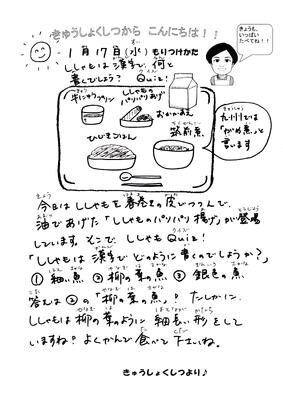 きゅうしょくしつから こんにちは！！
きょうも、
いっぱい
たべてね！！
1月17日(水) もりつけかた
ししゃもは漢字で、何と
書くでしょう？ Quiz!
クイズ
牛にゅうプリン
ししゃもの
パリパリあげ
おかかあえ
ひじきごはん
筑前煮
九州では
「がめ煮」と
言います
今日は ししゃもを春巻きの皮でつつんで、
油であげた「ししゃものパリパリ揚げ」が登場
しています。そこで、ししゃもQuiz!
「ししゃもは 漢字で どのように書くのでしょうか？」
① 細い魚 ② 柳の葉の魚 ③ 銀色の魚
答えは ②の「柳の葉の魚」？ たしかに、
ししゃもは柳の葉のように 細長い形をして
いますね？ よくかんで 食べて 下さいね。
きゅうしょくしつより♪